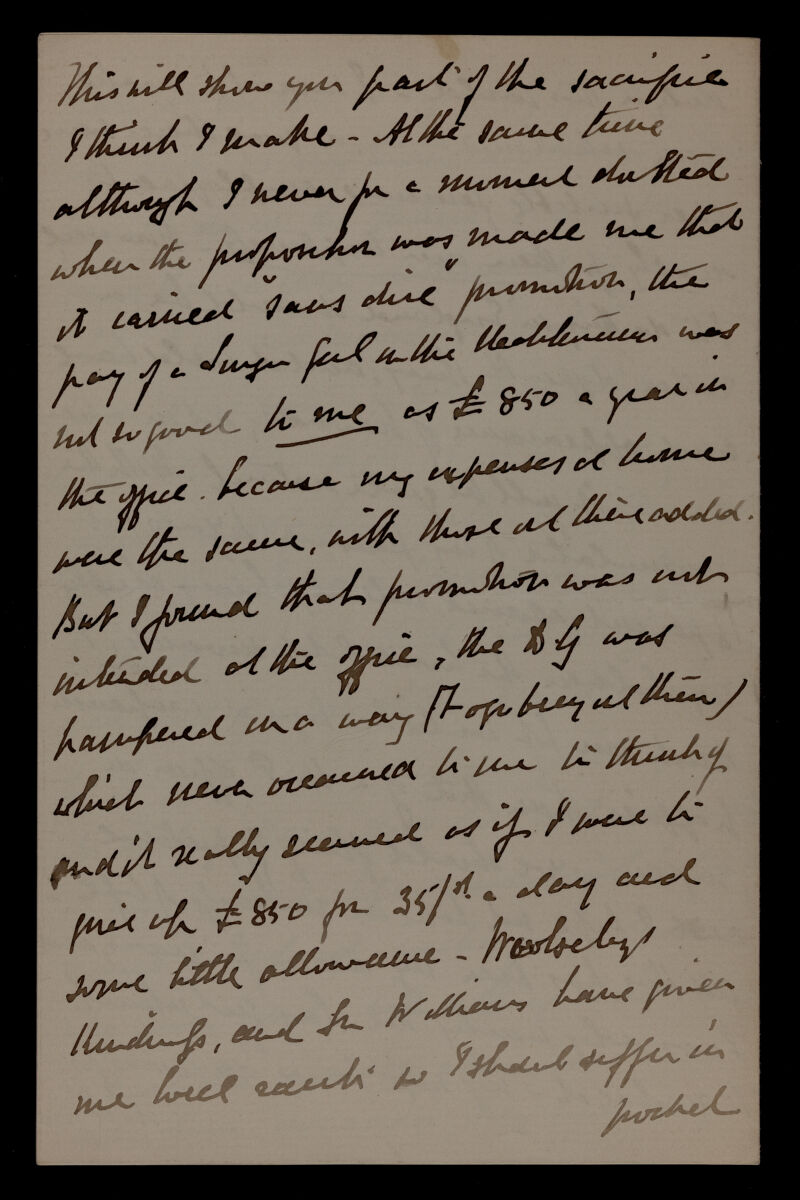 This will show you part of the sacrifice
I think I make - At the same time
although I never for a moment doubted
when the proposition was made me that
it carried "sans dire" promotion, the
pay of a Surgn Genl in the was
not so good to me as £850 a year in
the office. because my expenses at home
were the same, with those out there added.
But I found that promotion was not
intended at the office, the DG was
hampered in a way (Fogo being out there)
which never occurred to me to think of
and it really seemed as if I were to
give up £850 for 35/sh a day and
some little allowance - Woolseleys
kindness, and Sr Williams have given
me local rank so I shant suffer in
pocket